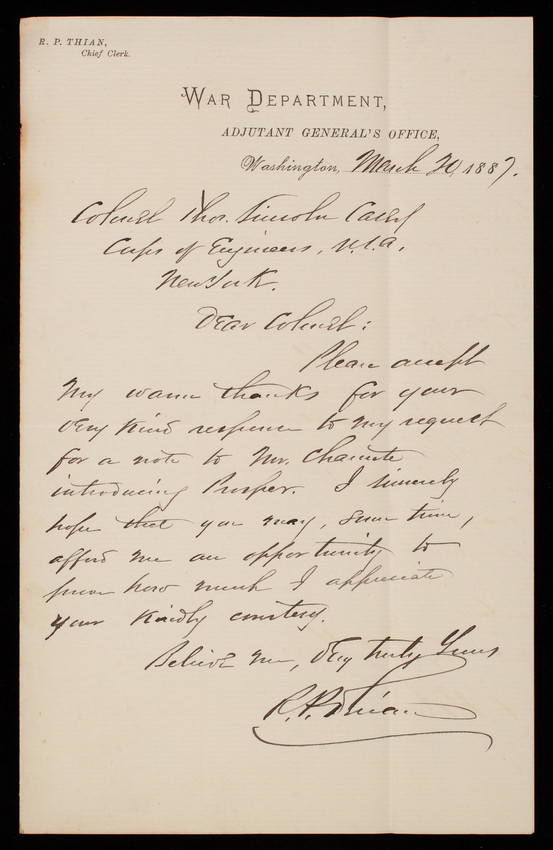 R. P. THIAN,
Chief Clerk.
WAR DEPARTMENT,
ADJUTANT GENERAL'S OFFICE,
Washington, March 20, 1887.
Colonel Thos. Lincoln Casey
Corps of Engineers, U.S.A.
New York.
Dear Colonel:
Please accept
my warm thanks for your
very kind response to my request
for a note to Mr. Chanute
introducing Prosper. I sincerely
hope that you may, some time,
afford me an opportunity to
prove how much I appreciate
your kindly courtesy.
Believe me, Very truly Yours
R. P. Thian